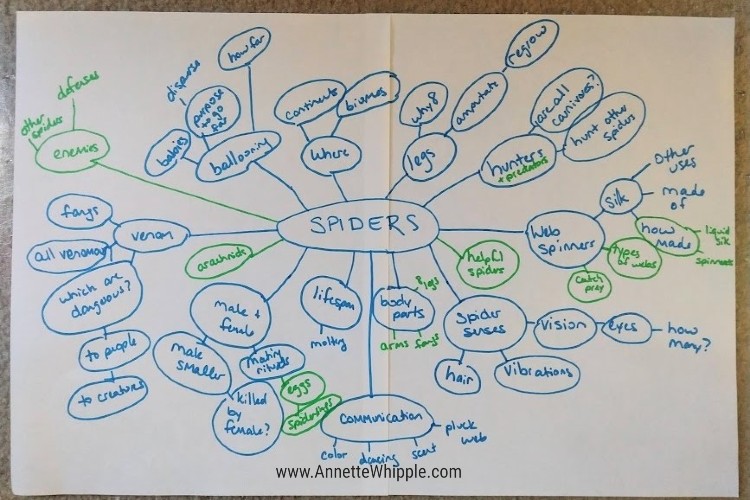 how far
regrow
disperse
continents
biomes
why?
amputate
are all
carnivores?
defenses
other
spiders
enemies
purpose
to go
far
babies
ballooning
where
legs
hunters
+ predators
hunt other
spiders
fangs
venom
SPIDERS
Web
spinners
silk
other
uses
made
of
how
made
liquid
silk
spinnerets
types
of webs
catch
prey
arachnids
helpful
spiders
which are
dangerous?
to people
to creatures
male +
female
male
smaller
mating
rituals
eggs
spiderlings
killed
by
female?
lifespan
molting
body
parts
8 legs
arms
fangs
spider
senses
vision
eyes
how
many?
hair
vibrations
communication
color
dancing
scent
pluck
web
www.AnnetteWhipple.com